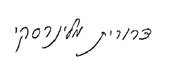 דרורית מלינרסקי